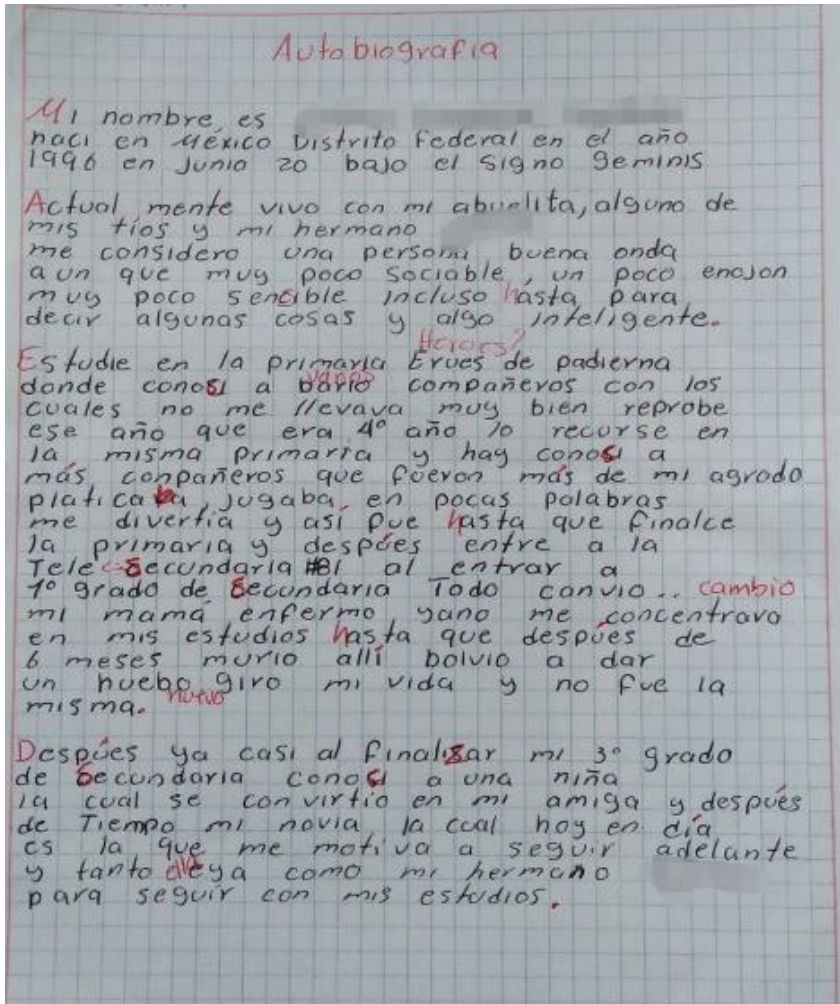 Autobiografia
Mi nombre, es
naci en México Distrito Federal en el año
1996 en Junio 20 bajo el signo geminis
Actual mente vivo con mi abuelita, alguno de
mis tíos y mi hermano
me considero una persona buena onda
a un que muy poco sociable, un poco enojon
muy poco sencible incluso hasta para
decir algunas cosas y algo inteligente.
Heroes?
Estudie en la primaria Erues de padierna
varios
donde conosi a bario compañeros con los
cuales no me llevava muy bien reprobe
ese año que era 4° año lo recurse en
la misma primaria y hay conosi a
más conpañeros que fueron más de mi agrado
platicaba, jugaba, en pocas palabras
me divertía y así fue hasta que finalce
la primaria y despúes entre a la
Tele Secundaria #81 al entrar a
1° grado de Secundaria Todo canvio.. cambio
mi mamá enfermo yano me concentrava
en mis estudios hasta que despúes de
6 meses murio allí bolvio a dar
un huebo giro mi vida y no fue la
nuevo
misma.
Despúes ya casi al finalizar mi 3° grado
de Secundaria conosi a una niña
la cual se convirtio en mi amiga y despúes
de Tiempo mi novia, la cual hoy en día
es la que me motiva a seguir adelante
y tanto elleya como mi hermano
para seguir con mis estudios.